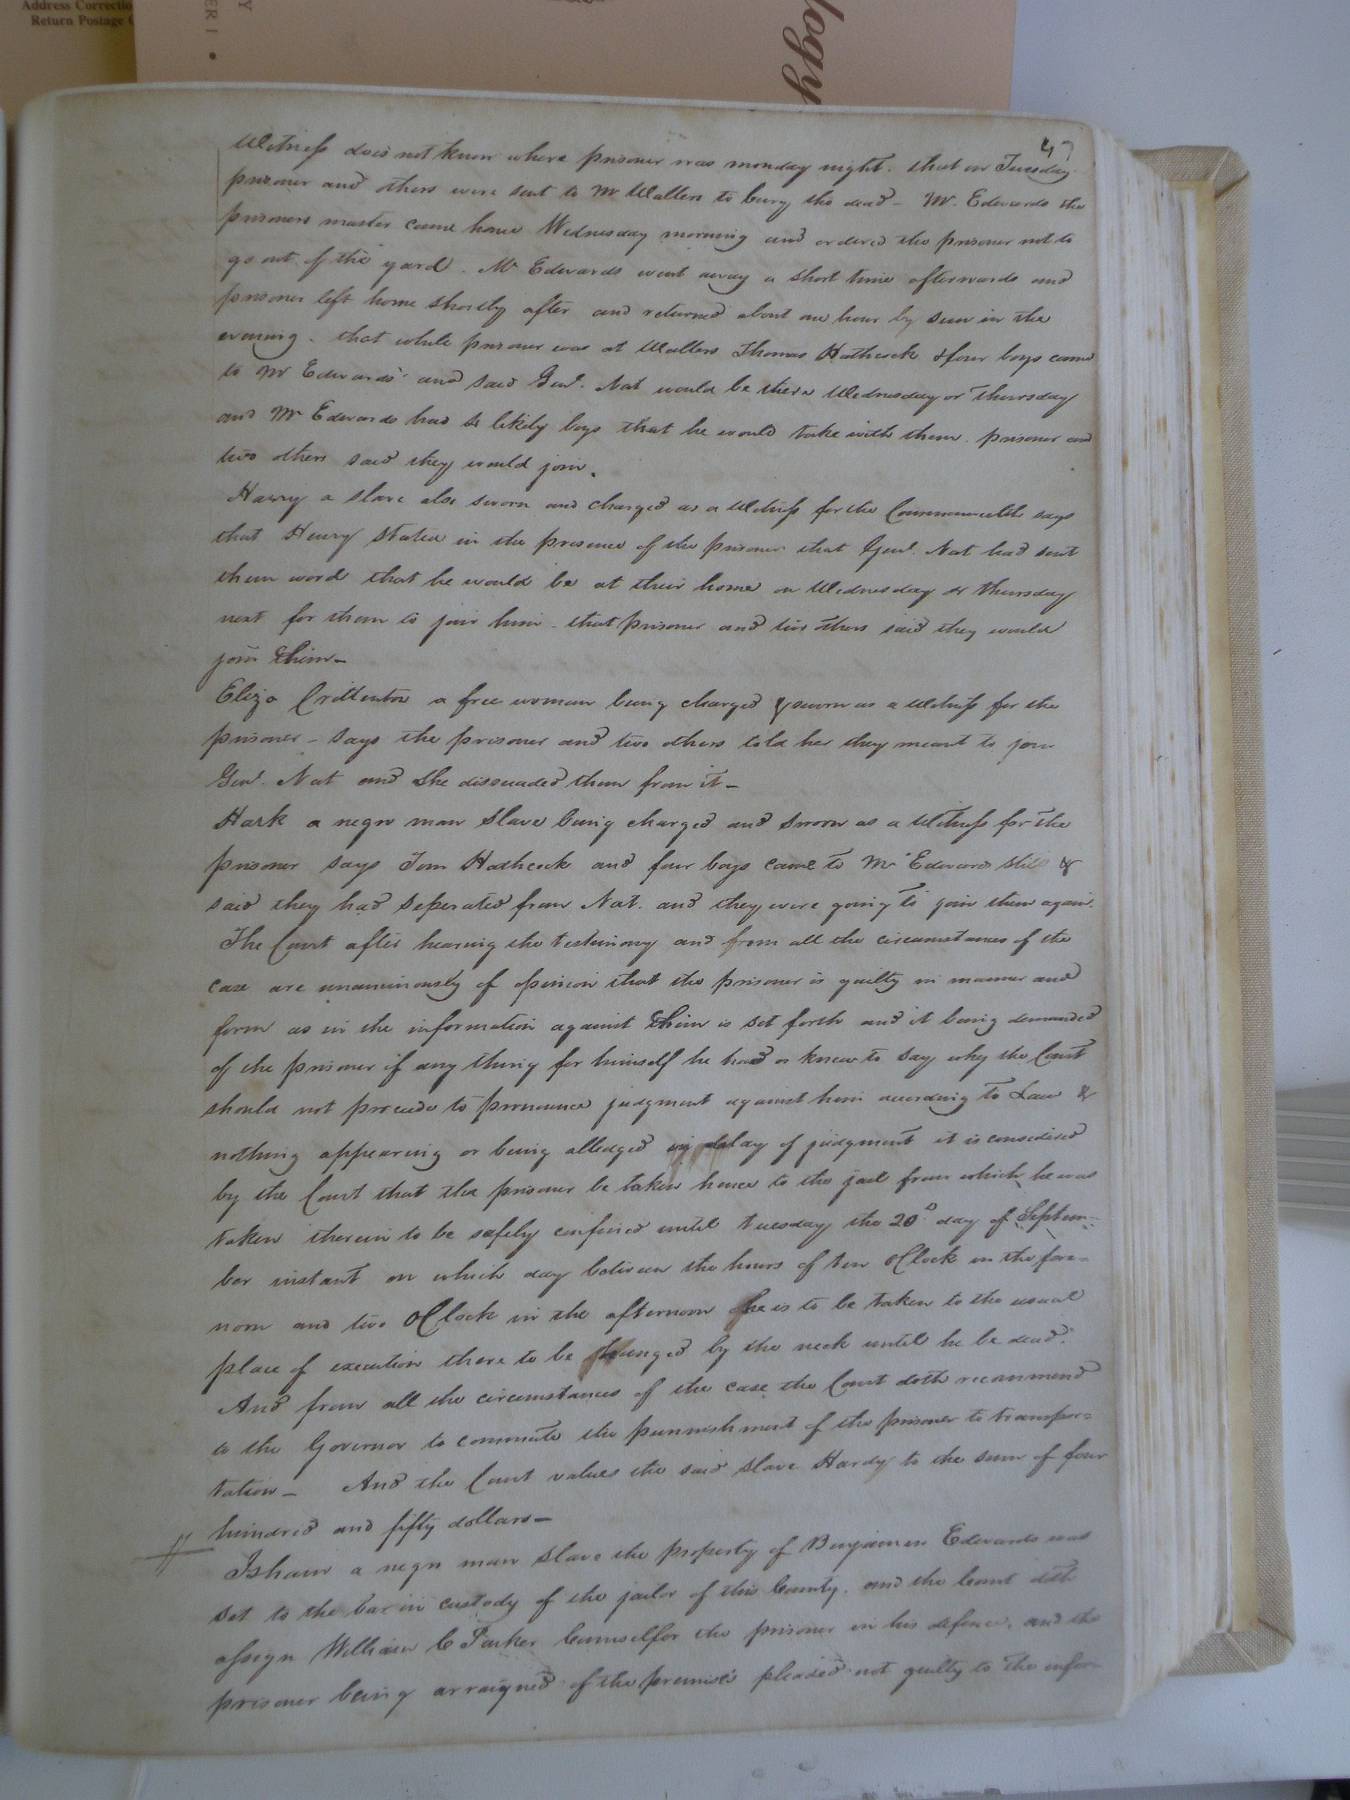 Address Correctio
Return Postage G
ER 1 •
Y
logy
47
Witness does not know where prisoner was monday night. that on Tuesday
prisoner and others were sent to Mr Wallers to bury the dead – Mr. Edwards the
prisoners master came home Wednesday morning and ordered the prisoner not to
go out of the yard. Mr Edwards went away a short time afterwards and
prisoner left home shortly after and returned about one hour by sun in the
evening. that while prisoner was at Wallers Thomas Hathcock & four boys came
to Mr Edwards' and said Genl. Nat would be there Wednesday or Thursday
and Mr Edwards had 4 likely boys that he would take with them. prisoner and
two others said they would join.
Harry a slave also sworn and charged as a Witness for the Commonwealth says
that Henry stated in the presence of the prisoner that Genl. Nat had sent
them word that he would be at their home on Wednesday or thursday
next for them to join him. that prisoner and two others said they would
join him –
Eliza Crittenton a free woman being charged & sworn as a Witness for the
prisoner – says the prisoner and two others told her they meant to join
Genl. Nat and she dissuaded them from it –
Hark a negro man Slave being charged and sworn as a Witness for the
prisoner says Tom Hathcock and four boys came to Mr Edwards still &
said they had seperated from Nat. and they were going to join them again.
The Court after hearing the testimony and from all the circumstances of the
case are unanimously of opinion that the prisoner is guilty in manner and
form as in the information against him is set forth and it being demanded
of the prisoner if any thing for himself he had or knew to say why the Court
should not proceede to pronounce judgment against him according to Law &
nothing appearing or being alledged in delay of judgment it is considered
by the Court that the prisoner be taken hence to the jail from which he was
taken therein to be safely confined until tuesday the 20th day of Septem-
ber instant on which day between the hours of ten oClock in the fore=
noon and two oClock in the afternoon he is to be taken to the usual
place of execution there to be hanged by the neck until he be dead.
And from all the circumstances of the case the Court doth recommend
to the Governor to commute the punnishment of the prisoner to transpor=
tation – And the Court values the said slave Hardy to the sum of four
hundred and fifty dollars –
Isham a negro man slave the property of Benjamin Edwards was
set to the bar in custody of the jailor of this County. and the Court doth
assign William C Parker Counsel for the prisoner in his defence, and the
prisoner being arraigned of the premises pleaded not guilty to the infor-